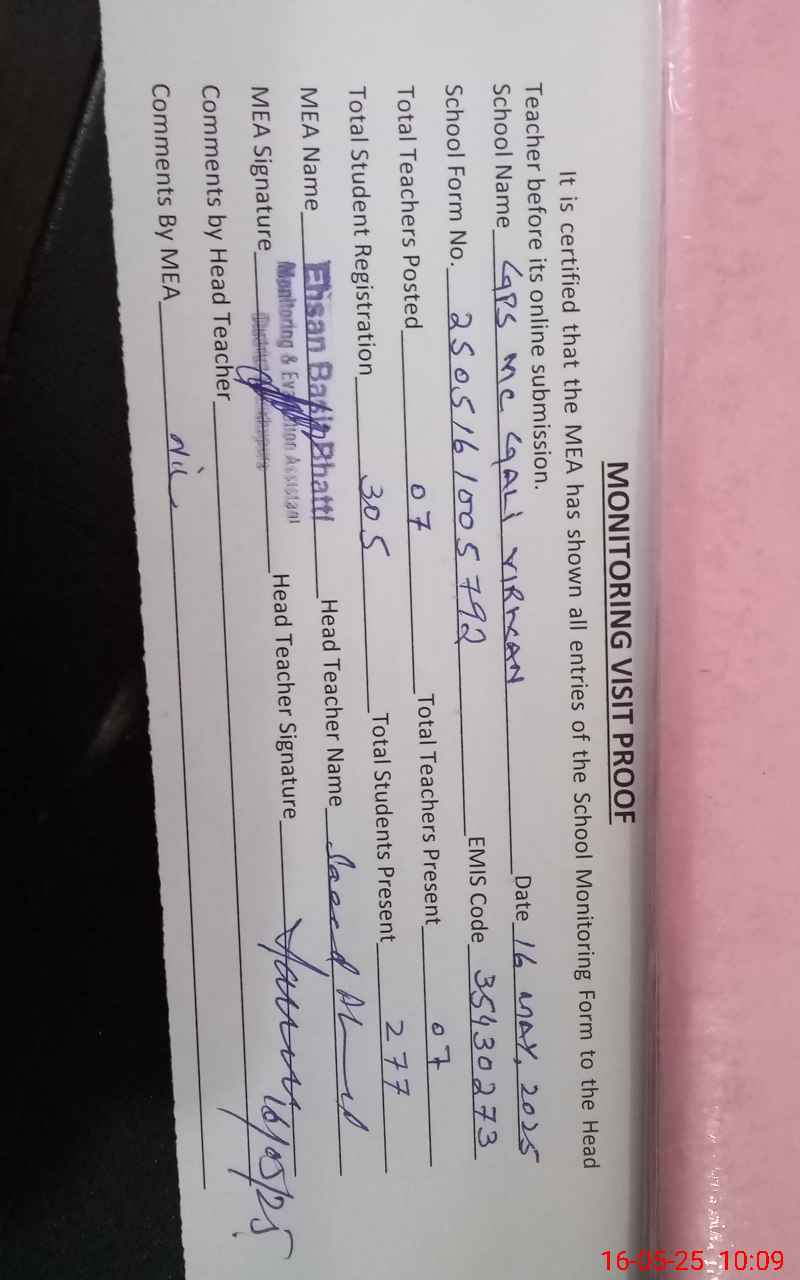 MONITORING VISIT PROOF
It is certified that the MEA has shown all entries of the School Monitoring Form to the Head
Teacher before its online submission.
School Name GPS MC GALI VIRKAN Date 16 MAY, 2025
School Form No. 2505161005792 EMIS Code 35430273
Total Teachers Posted 07 Total Teachers Present 07
Total Student Registration 305 Total Students Present 277
MEA Name Ehsan Basir Bhatti Head Teacher Name Saeed
Monitoring & Evaluation Assistant
MEA Signature Head Teacher Signature 16/05/25
Comments by Head Teacher
Comments By MEA Nil
16-05-25 10:09